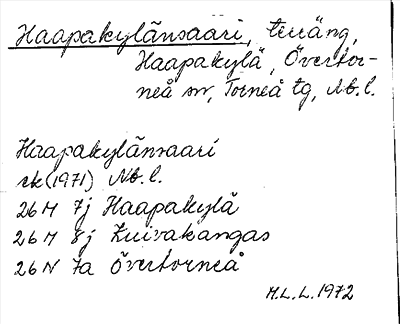 Haapakylänsaari, terräng,
Haapakylä, Övertor-
neå sn, Torneå tg, Nb.l.
Haapakylänsaari
rk (1971) Nb.l.
26M 7j Haapakylä
26M 8j Kuivakangas
26N 7a Övertorneå
M.L.L. 1972